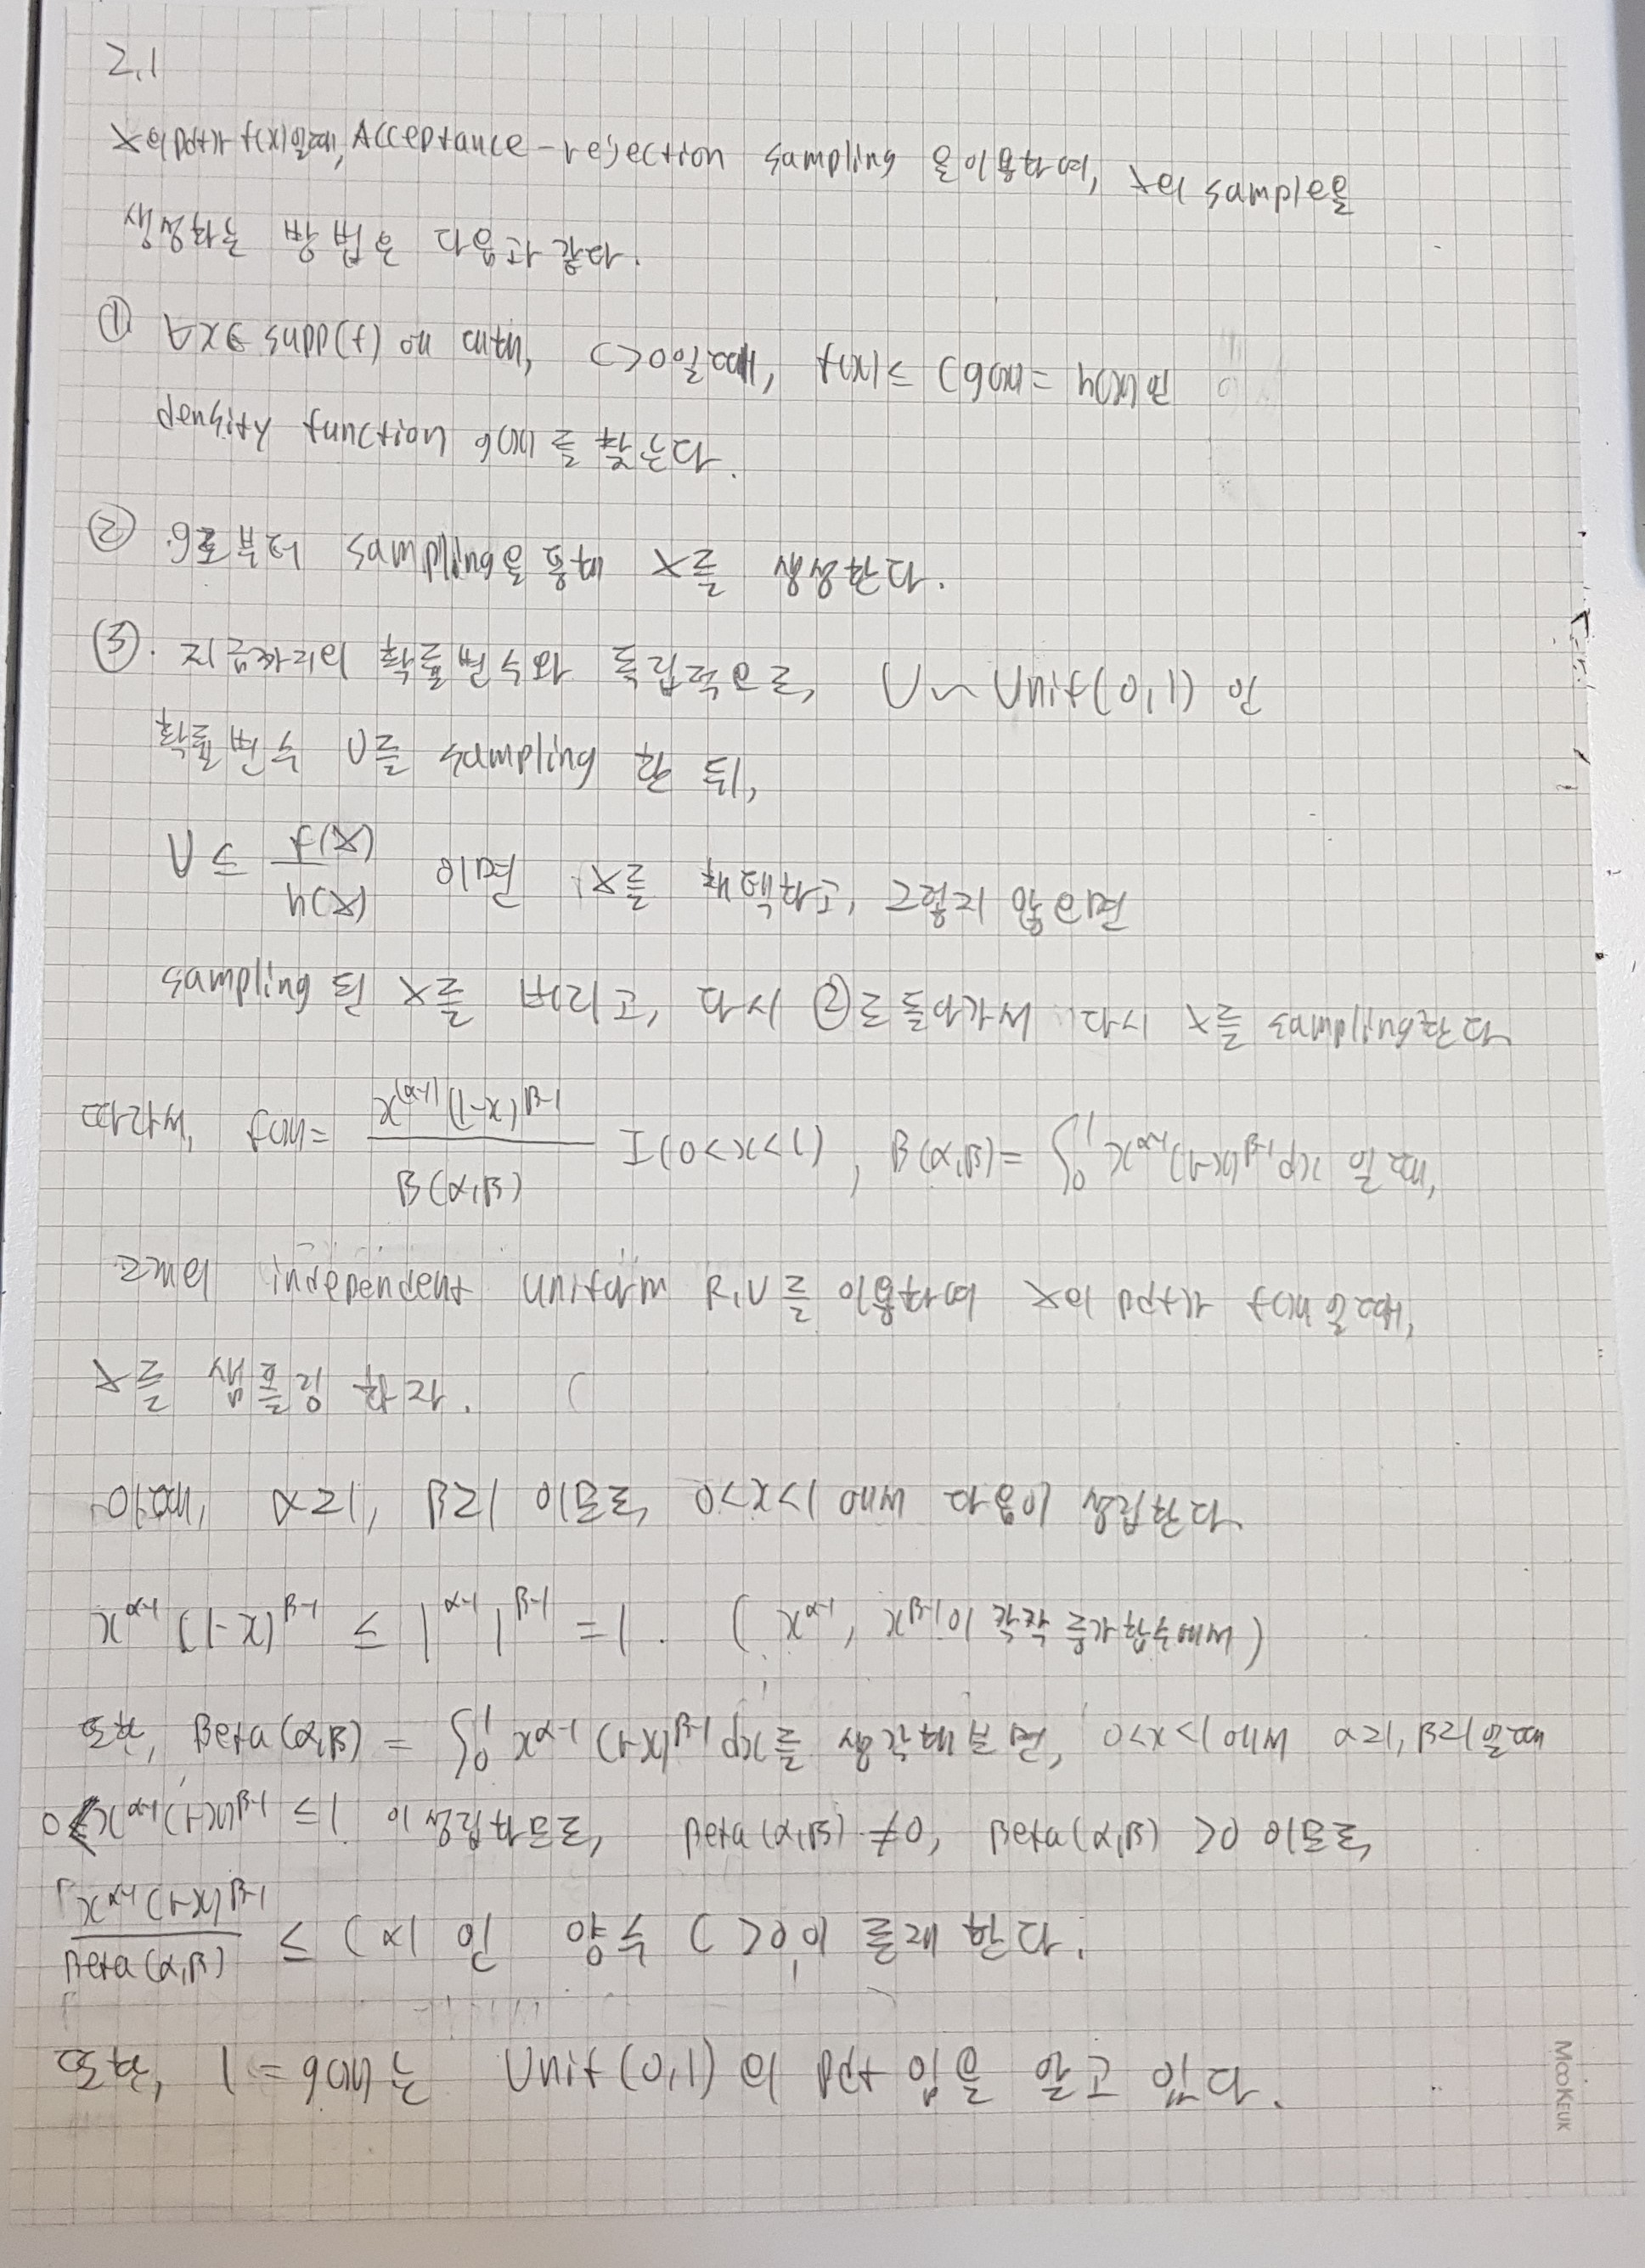 2.1
X의 pdf가 f(x)일때, Acceptance-rejection sampling 을 이용하여, X의 sample을
생성하는 방법은 다음과 같다.
① ∀x∈supp(f) 에 대해, C>0일때, f(x) ≤ Cg(x) = h(x)인
density function g(x)를 찾는다.
② g로부터 sampling을 통해 X를 생성한다.
③. 지금까지의 확률변수와 독립적으로, U ~ Unif(0,1) 인
확률변수 U를 sampling 한 뒤,
U ≤ f(X)/h(X) 이면 X를 채택하고, 그렇지 않으면
sampling 된 X를 버리고, 다시 ②로 돌아가서 다시 X를 sampling한다
따라서, f(x) = x^(α-1)(1-x)^(β-1)/B(α,β) I(0<x<1), B(α,β) = ∫₀¹ x^(α-1)(1-x)^(β-1)dx 일때,
2개의 independent uniform R.V를 이용하여 X의 pdf가 f(x)일때,
X를 샘플링 하자. (
이때, α≥1, β≥1 이므로, 0<x<1 에서 다음이 성립한다.
x^(α-1) (1-x)^(β-1) ≤ 1^(α-1) 1^(β-1) = 1. ( x^(α-1), x^(β-1)이 각각 증가함수에서)
또한, Beta(α,β) = ∫₀¹ x^(α-1) (1-x)^(β-1) dx를 생각해보면, 0<x<1에서 α≥1, β≥1일때
0<x^(α-1)(1-x)^(β-1) ≤1 이 성립하므로, Beta(α,β) ≠0, Beta(α,β) >0 이므로,
x^(α-1)(1-x)^(β-1)/Beta(α,β) ≤ C×1 인 양수 C>0이 존재한다.
또한, 1 = g(x)는 Unif(0,1)의 pdf 임을 알고 있다.
MOOKEUK